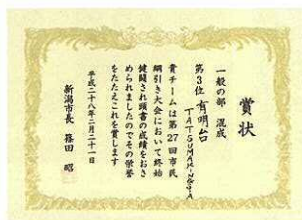 賞状
一般の部 混成
第3位 有明台
TATSUMAKI-NGGA
貴チームは第27回市民
綱引き大会において終始
健闘され頭書の成績をおさ
められましたのでその栄誉
をたたえこれを賞します
平成二十八年二月二十一日
新潟市長 篠田 昭